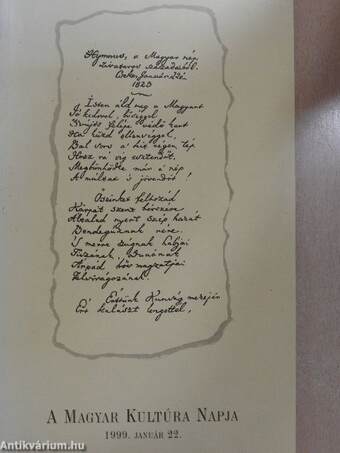 Hymnus, a Magyar nép
zivataros századaiból.
Cseke, Január 22d.
1823
O, Isten áld meg a Magyart
Jó kedvvel, bőséggel
Nyújts feléje védő kart
Ha küzd ellenséggel,
Bal sors a' kit régen tép
Hozz rá víg esztendőt,
Megbünhödte már a nép
A' múltat 's jövendőt!
Őseinket felhozád
Kárpát szent bérczére
Általad nyert szép hazát
Bendegúznak vére.
'S merre zúgnak habjai
Tiszának, Dunának
Árpád hős magzatjai
Felvirágozának.
Értünk Kunság mezején
Ért kalászt lengettél,
A MAGYAR KULTÚRA NAPJA
1999. JANUÁR 22.
Antikvárium.hu